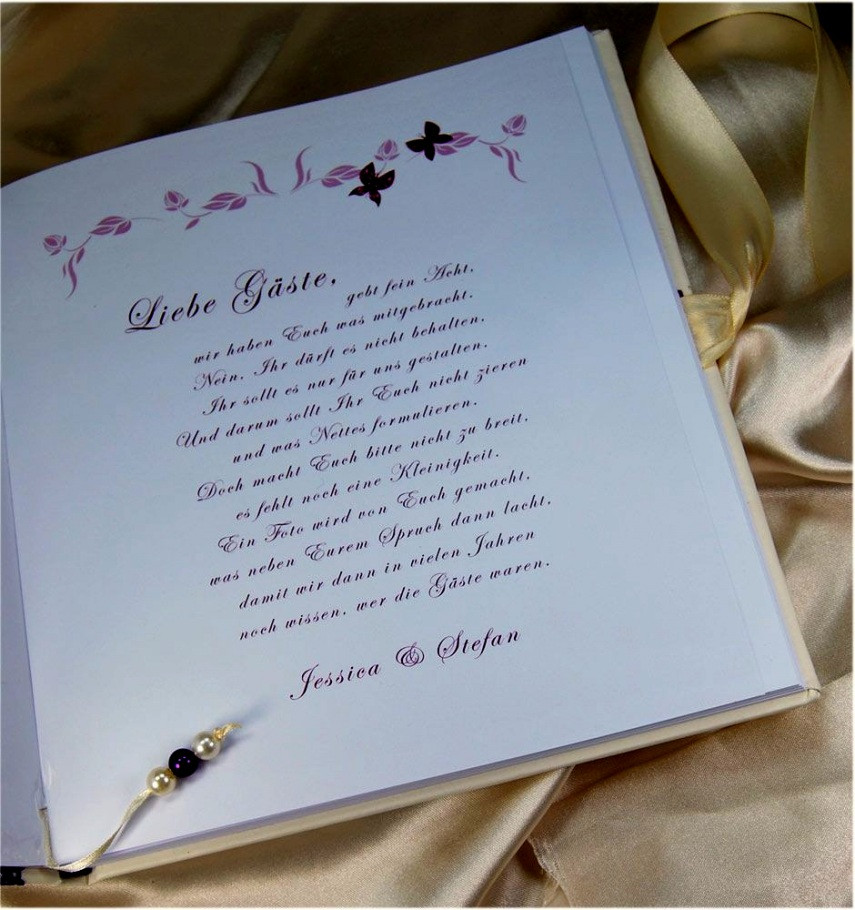 Liebe Gäste, gebt fein Acht,
wir haben Euch was mitgebracht.
Nein, Ihr dürft es nicht behalten,
Ihr sollt es nur für uns gestalten.
Und darum sollt Ihr Euch nicht zieren
und was Nettes formulieren.
Doch macht Euch bitte nicht zu breit,
es fehlt noch eine Kleinigkeit.
Ein Foto wird von Euch gemacht,
was neben Eurem Spruch dann lacht,
damit wir dann in vielen Jahren
noch wissen, wer die Gäste waren.
Jessica & Stefan